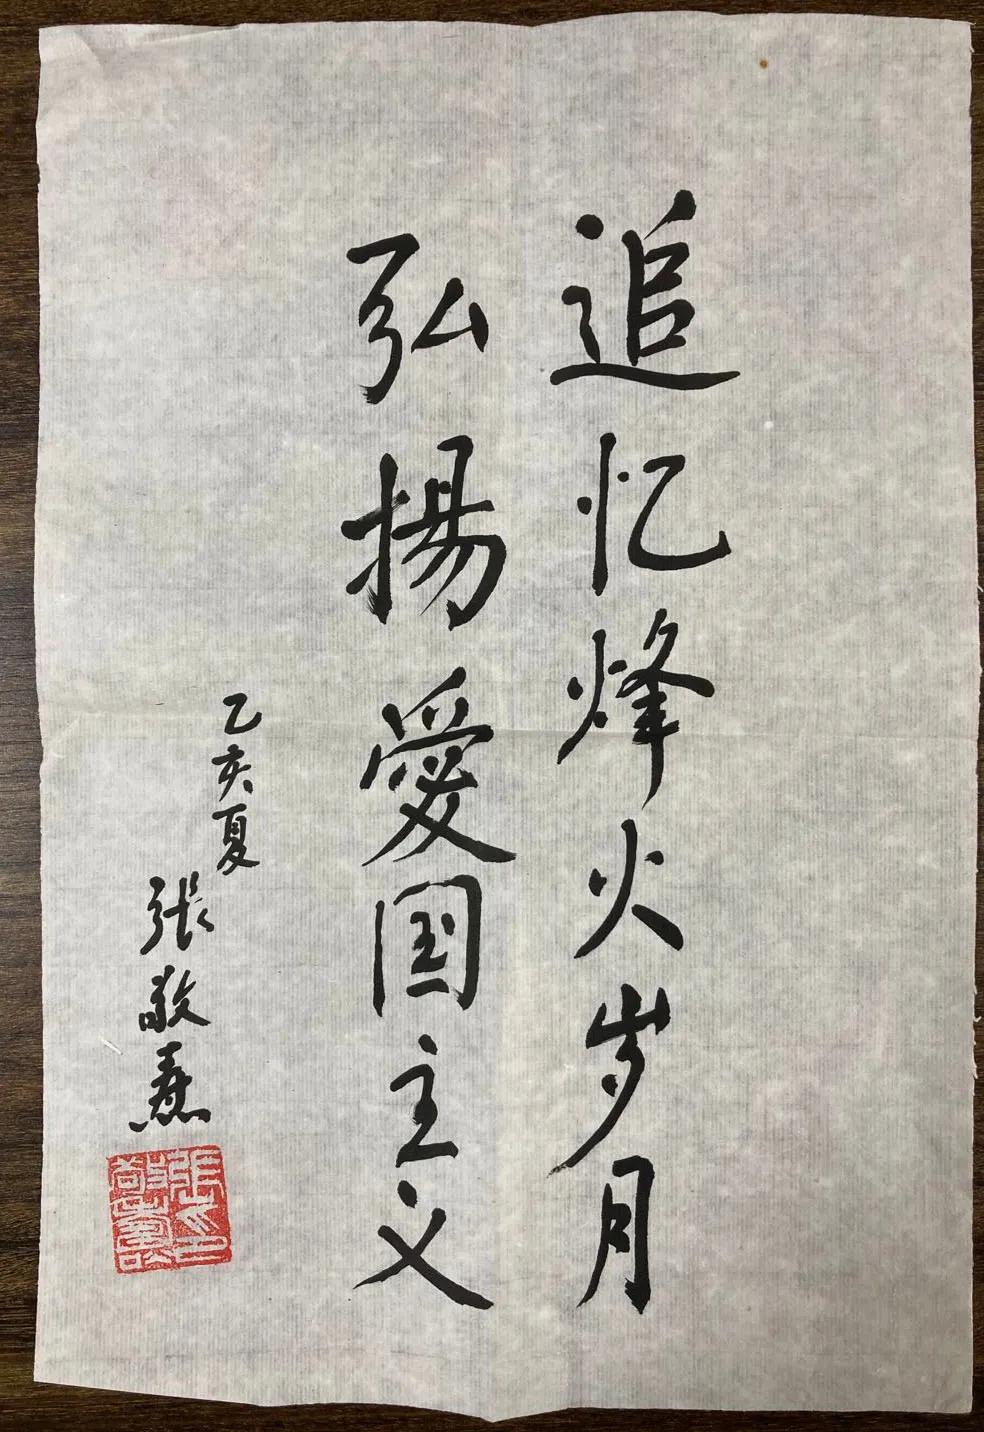 追忆烽火岁月
弘揚愛国主义
乙亥夏
張敬燾